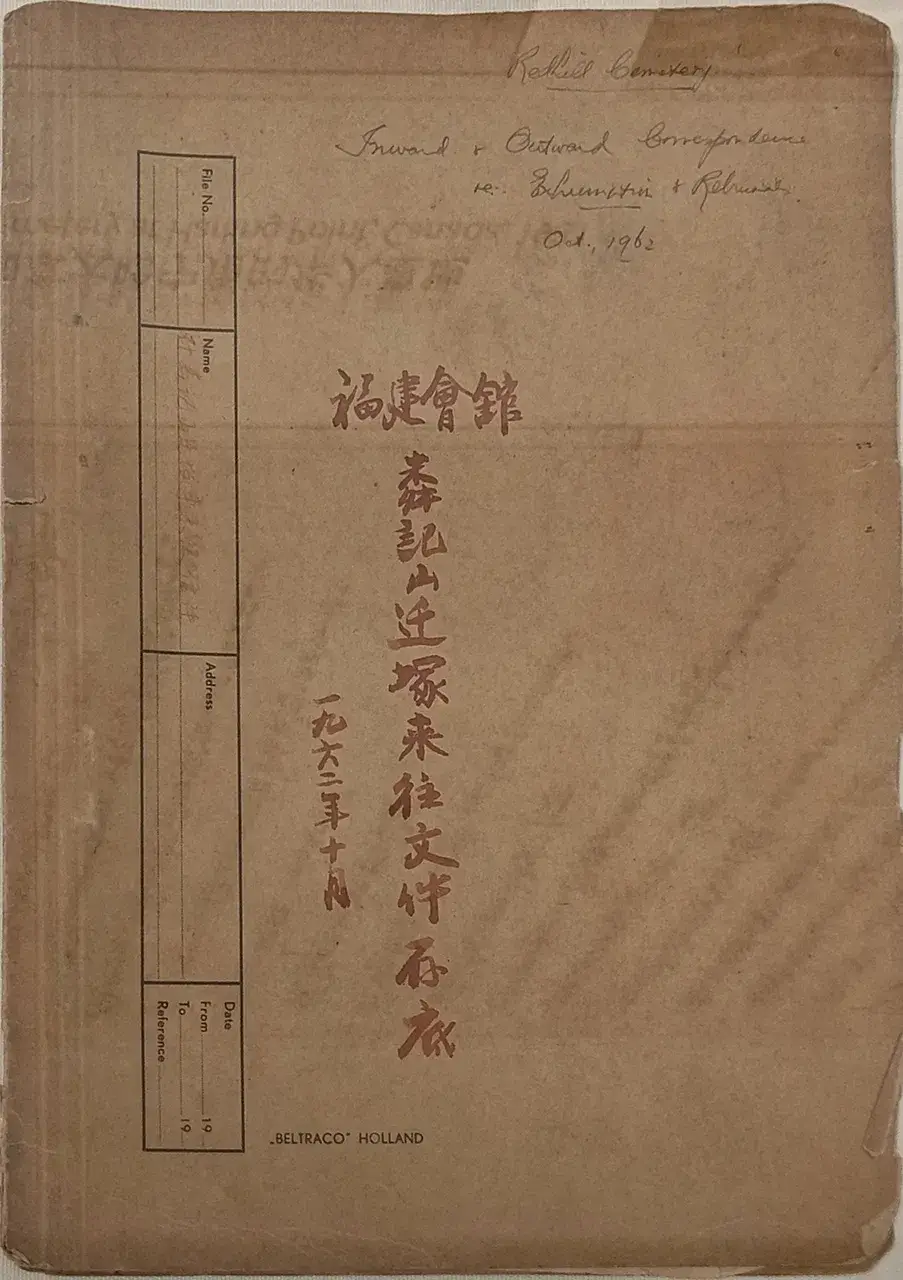 Redhill Cemetery
Inward & Outward Correspondence
re. Exhumation & Reburials
Oct., 1962
福建會館
森記山迁塚来往文件存底
一九六二年十月
File No.
Name
Address
Date
From 19
To 19
Reference
„BELTRACO" HOLLAND